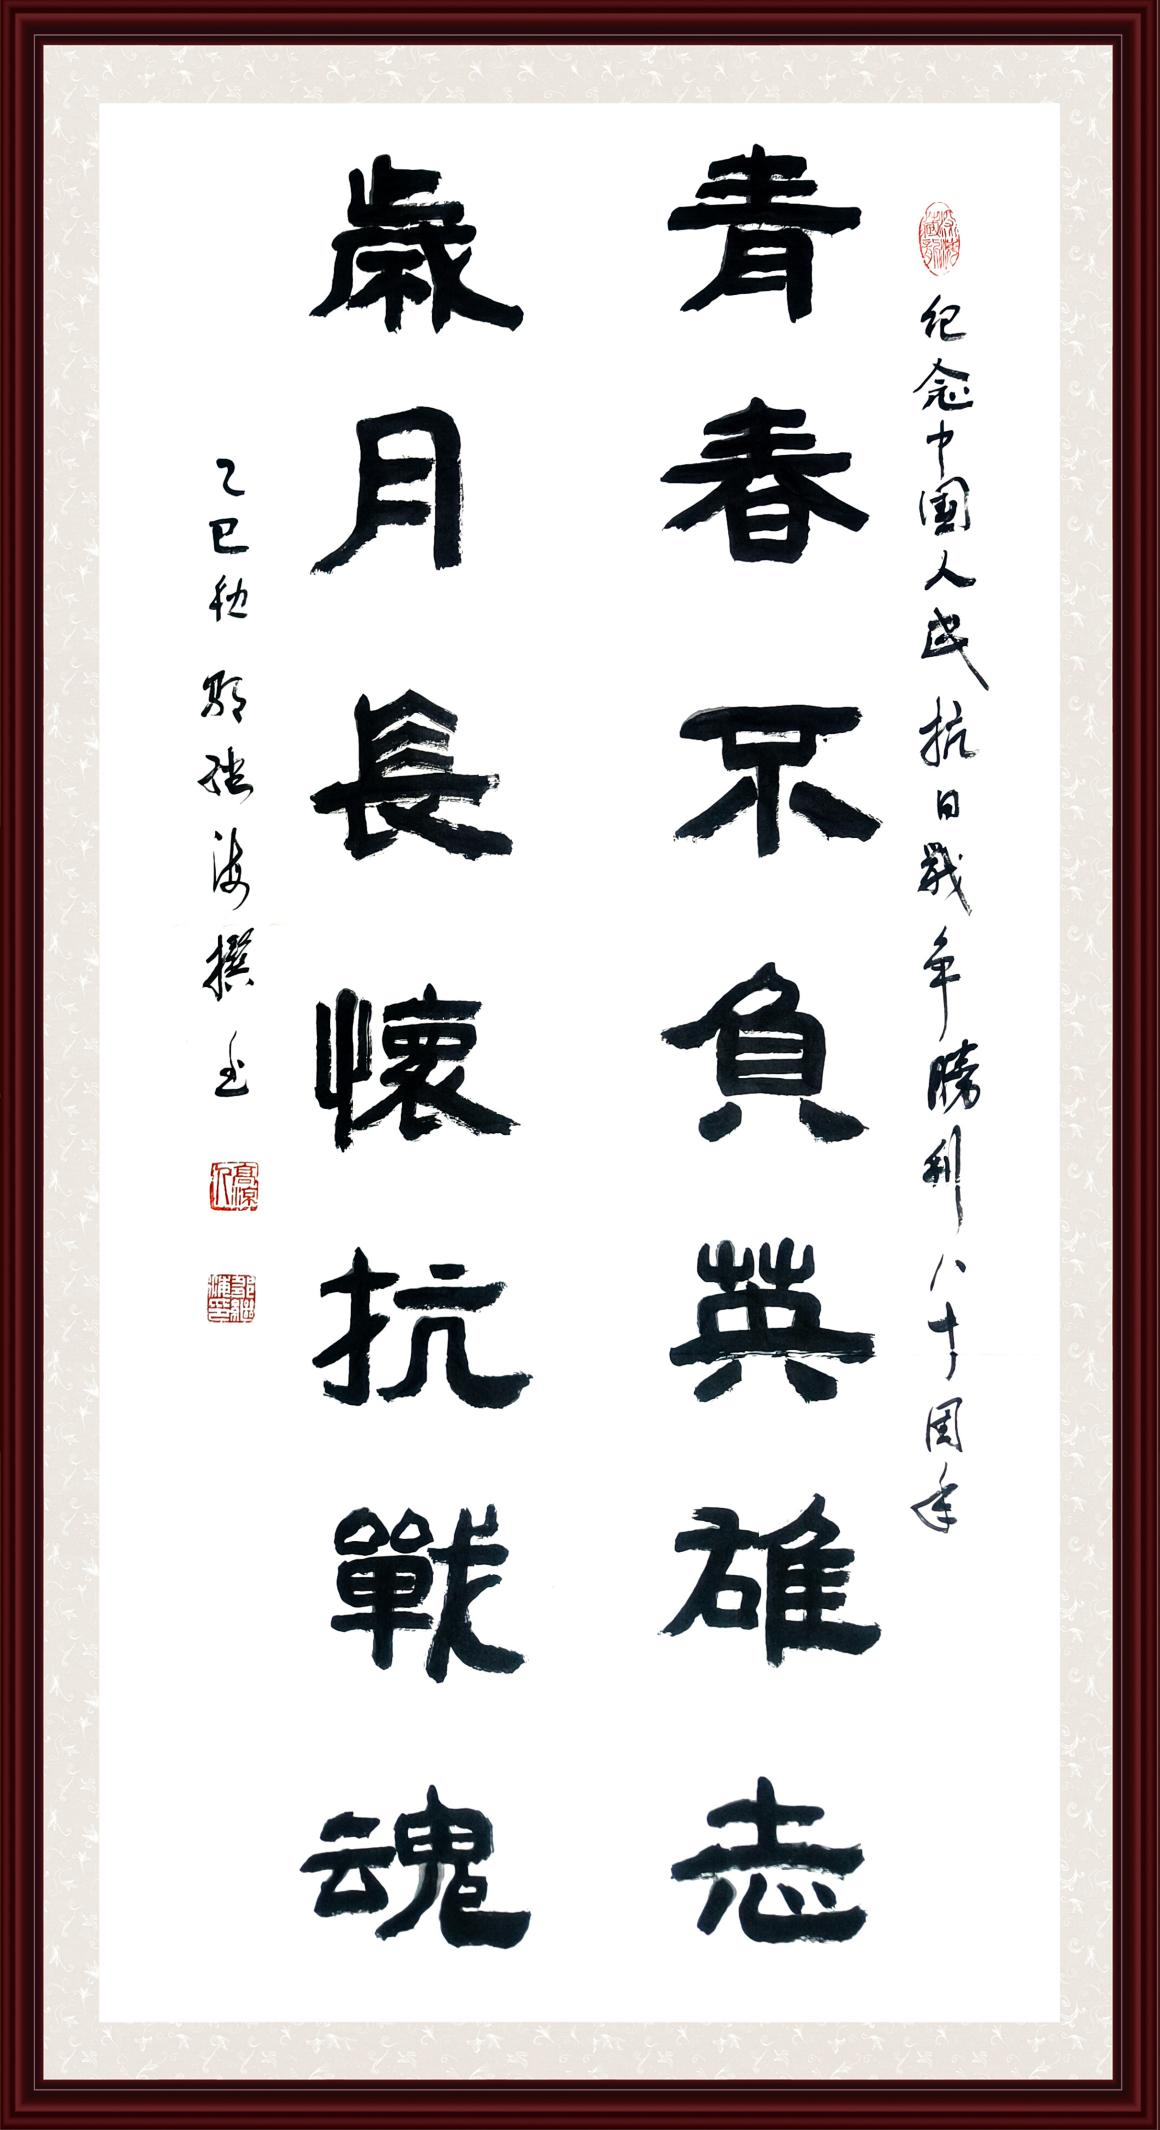 纪念中國人民抗日戰争勝利八十周年
青春不負英雄志
歲月長懷抗戰魂
乙巳秋 海撰書
高凉人